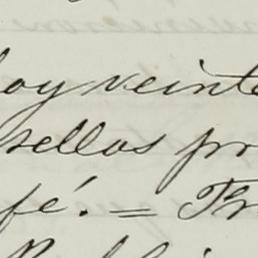 hoy veinte
sellos pr
fé. = Fr